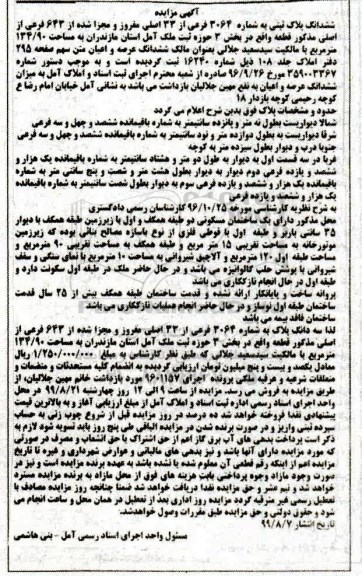 آگهی مزایده
ششدانگ پلاک ثبتی به شماره ۳۰۶۴ فرعی از ۳۳ اصلی مفروز و مجزا شده از ۶۴۳ فرعی از
اصلی مذکور قطعه واقع در بخش ۳ حوزه ثبت ملک آمل استان مازندران به مساحت ۱۳۴/۹۰
مترمربع با مالکیت سیدسعید جلالی بعنوان مالک ششدانگ عرصه و اعیان متن سهم صفحه ۲۹۵
دفتر املاک جلد ۱۰۸ ذیل شماره ۱۶۲۴۰ ثبت گردیده است و به موجب دستور شماره
۳۵۹۰۰۳۳۶۷ مورخ ۹۶/۹/۲۶ صادره از شعبه محترم اجرای ثبت اسناد و املاک آمل به میزان
ششدانگ عرصه و اعیان به نفع مهین جلالیان بازداشت می باشد به نشانی آمل خیابان امام رضا ع
کوچه رحیمی کوچه بازدار ۱۸
حدود و مشخصات پلاک فوق بدین شرح اعلام می گردد
شمالا دیواریست بطول نه متر و پانزده سانتیمتر به شماره باقیمانده ششصد و چهل و سه فرعی
شرقا دیواریست به بطول دوازده متر و نود سانتیمتر به شماره باقیمانده ششصد و چهل و سه فرعی
جنوبا درب و دیوار بطول سیزده متر به کوچه
غربا در سه قسمت اول به دیوار به طول دو متر و هشتاد سانتیمتر به شماره باقیمانده یک هزار و
ششصد و یازده فرعی دوم دیوار به دیوار بطول هشت متر و شصت و پنج سانتی متر به شماره
باقیمانده یک هزار و ششصد و یازده فرعی سوم به دیوار بطول شصت سانتیمتر به شماره باقیمانده
یک هزار و ششصد و یازده فرعی
به شرح نظریه کارشناسی مورخه ۹۶/۱۰/۲۵ کارشناسان رسمی دادگستری
محل مذکور دارای یک ساختمان مسکونی دو طبقه همکف و اول با زیرزمین طبقه همکف با دیوار
۳۵ سانتی باربر و طبقه اول با قوطی فلزی از نوع باسازه مصالح بنائی بوده که زیرزمین
موتورخانه به مساحت تقریبی ۱۵ متر مربع و طبقه همکف به مساحت تقریبی ۹۰ مترمربع و
مساحت طبقه اول ۱۲۰ مترمربع و آلاچیق شیروانی به مساحت ۱۰ مترمربع با نمای سنگی و سقف
شیروانی با پوشش حلب گالوانیزه می باشد و در حال حاضر ملک در طبقه اول سکونت دارد و
طبقه اول در حال انجام نازک‌کاری می باشد
پروانه ساخت و پایانکار ارائه نشده و قدمت ساختمان طبقه همکف بیش از ۲۵ سال قدمت
ساختمان طبقه اول نوساز و در حال حاضر انجام عملیات نازک‌کاری می باشد
ساختمان فاقد بیمه می باشد
لذا سه دانگ پلاک به شماره ۳۰۶۴ فرعی از ۳۳ اصلی مفروز و مجزا شده از ۶۴۳ فرعی از
اصلی مذکور قطعه واقع در بخش ۳ حوزه ثبت ملک آمل استان مازندران به مساحت ۱۳۴/۹۰
مترمربع با مالکیت سیدسعید جلالی که طبق نظر کارشناس به مبلغ ۱/۲۵۰/۰۰۰/۰۰۰ ریال
معادل یکصد و بیست و پنج میلیون تومان ارزیابی گردیده به انضمام کلیه مستحدثات و منضمات و
متعلقات شرعیه و عرفیه ملکی پرونده اجرای ۹۶۰۱۱۵۷ مورد بازداشت خانم مهین جلالیان، از
طریق مزایده به فروش می رسد. مزایده از ساعت ۹ الی ۱۲ روز چهارشنبه ۹۹/۸/۲۱ در محل
واحد اجرای اسناد رسمی اداره ثبت اسناد و املاک آمل از مبلغ ارزیابی آغاز و به بالاترین قیمت
پیشنهادی نقدا فروخته خواهد شد ده درصد در روز مزایده قبل از شروع چوب زنی به حساب
سپرده ثبتی واریز و در صورت برنده شدن در مزایده الباقی طی پنج روز باید تسویه شود لازم به
ذکر است پرداخت بدهی های آب برق گاز اعم از حق اشتراک یا حق انشعاب و مصرف در صورتی
که مورد مزایده دارای آنها باشد و نیز بدهی های مالیاتی و عوارض شهرداری و غیره تا تاریخ
مزایده اعم از اینکه رقم قطعی آن معلوم شده یا نشده باشد به عهده برنده مزایده است و نیز در
صورت وجود مازاد وجوه پرداختی بابت هزینه های فوق از محل مازاد به برنده مزایده مسترد
خواهد شد و نیم عشر و حق مزایده نقدا دریافت خواهد شد ضمنا چنانچه روز مزایده مصادف با
تعطیل رسمی غیر مترقبه گردد مزایده روز اداری بعد از تعطیل در همان محل و ساعت انجام می
شود و حقوق دولتی و حق مزایده طبق مقررات وصول خواهدشد.
تاریخ انتشار ۹۹/۸/۷
مسئول واحد اجرای اسناد رسمی آمل - بنی هاشمی